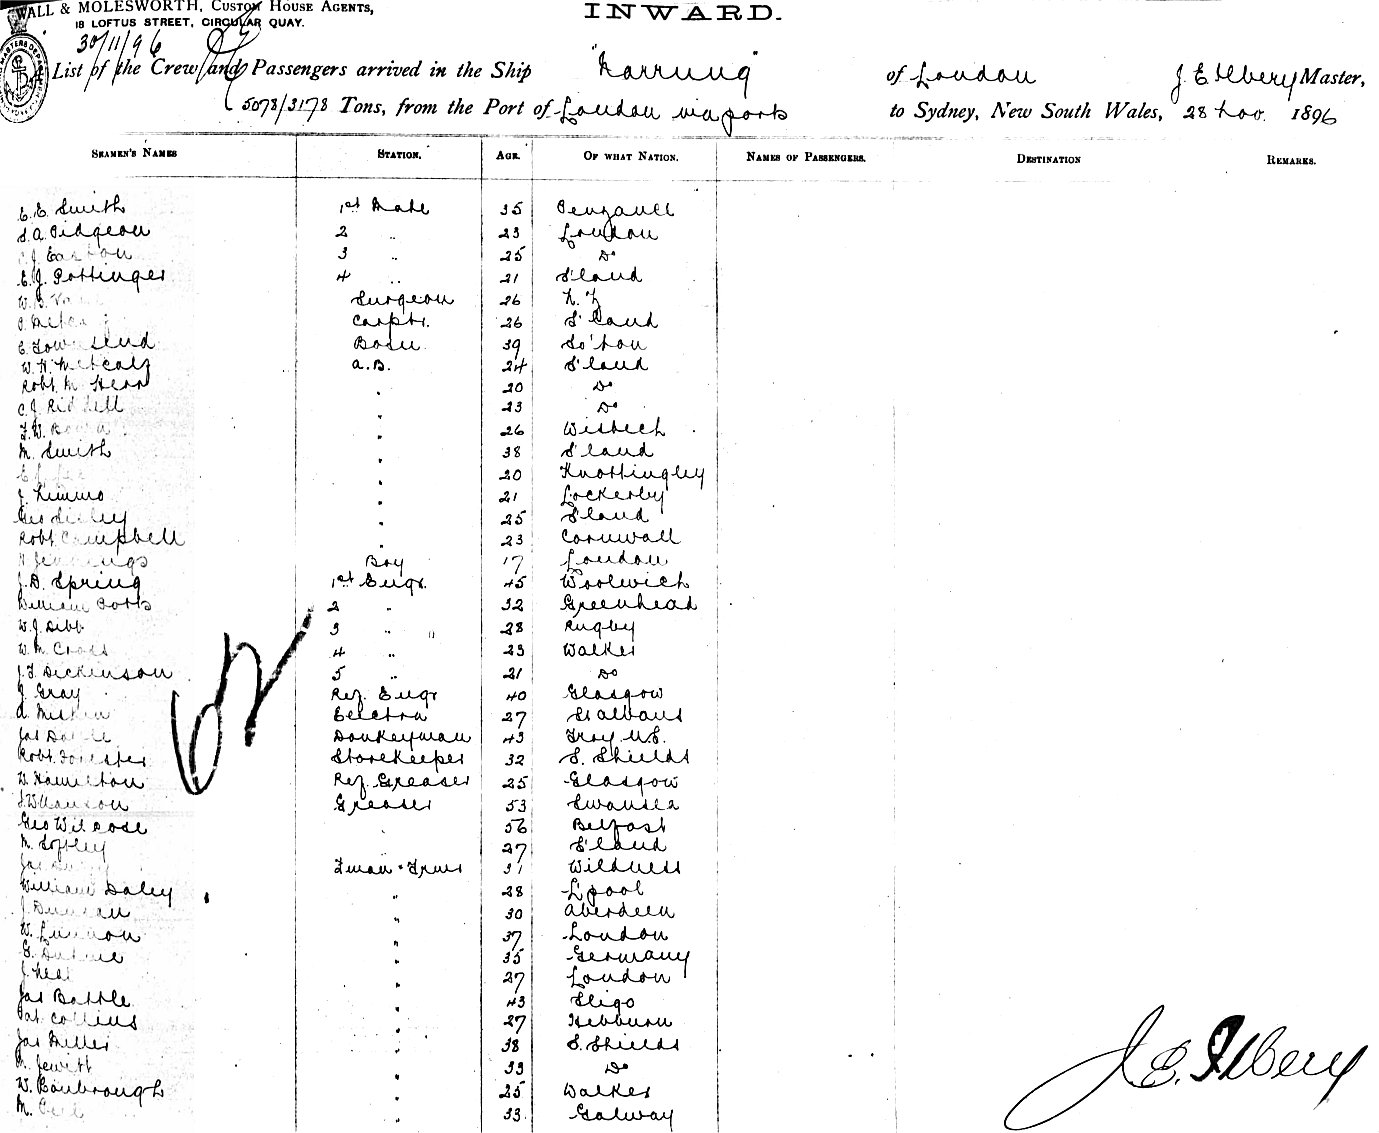 WALL & MOLESWORTH, CUSTOM HOUSE AGENTS,
18 LOFTUS STREET, CIRCULAR QUAY.
INWARD.
30/11/96
List of the Crew and Passengers arrived in the Ship "Narrung" of London J E Ilbery Master,
5078/3178 Tons, from the Port of London via ports to Sydney, New South Wales, 28 Nov. 1896
SEAMEN'S NAMES STATION. AGE. OF WHAT NATION. NAMES OF PASSENGERS. DESTINATION REMARKS.
E. E. Smith 1st Mate 35 Penzance
S. A. Pidgeon 2 " 23 London
C J Easton 3 " 25 Do
E. J. Pottinger 4 " 21 S'land
W. B. Surgeon 26 N. Z
Carptr. 26 S'land
E Townsend Bosn 39 So'ton
W. H. Metcalf A.B. 24 S'land
Robt. M Herr " 20 Do
C. J. Riddell " 23 Do
W. " 26 Wisbech
M. Smith " 38 S'land
" 20 Knottingley
J. Kimmo " 21 Lockerby
Geo Sibley " 25 S'land
Robt. Campbell " 23 Cornwall
H Jennings Boy 17 London
J. B. Spring 1st Engr. 45 Woolwich
William Potts 2 " 32 Greenhead
W. J. Dibb 3 " " 28 Rugby
W. M. Cross 4 " 23 Walker
J. F. Dickinson 5 " 21 Do
J. Gray Ref. Engr 40 Glasgow
A. Electrn 27 St Albans
Jas Donkeyman 43 Troy U.S.
Robt. Forester Storekeeper 32 S. Shields
W. Hamilton Ref. Greaser 25 Glasgow
Greaser 53 Swansea
Geo Wilcose 56 Belfast
M. Softley " 27 S'land
Jas Fman & Trmr 31 Wildness
William Daley " 28 L'pool
J. Duncan " 30 Aberdeen
W. " 37 London
" 35 Germany
J. Neal " 27 London
Jas Battle " 43 Sligo
Pat. Collins " 27 Hebburn
Jas Miller " 38 S. Shields
M. Jewitt " 33 Do
W. Bonbrough " 25 Walker
M. " 33 Galway
62
J. E. Ilbery